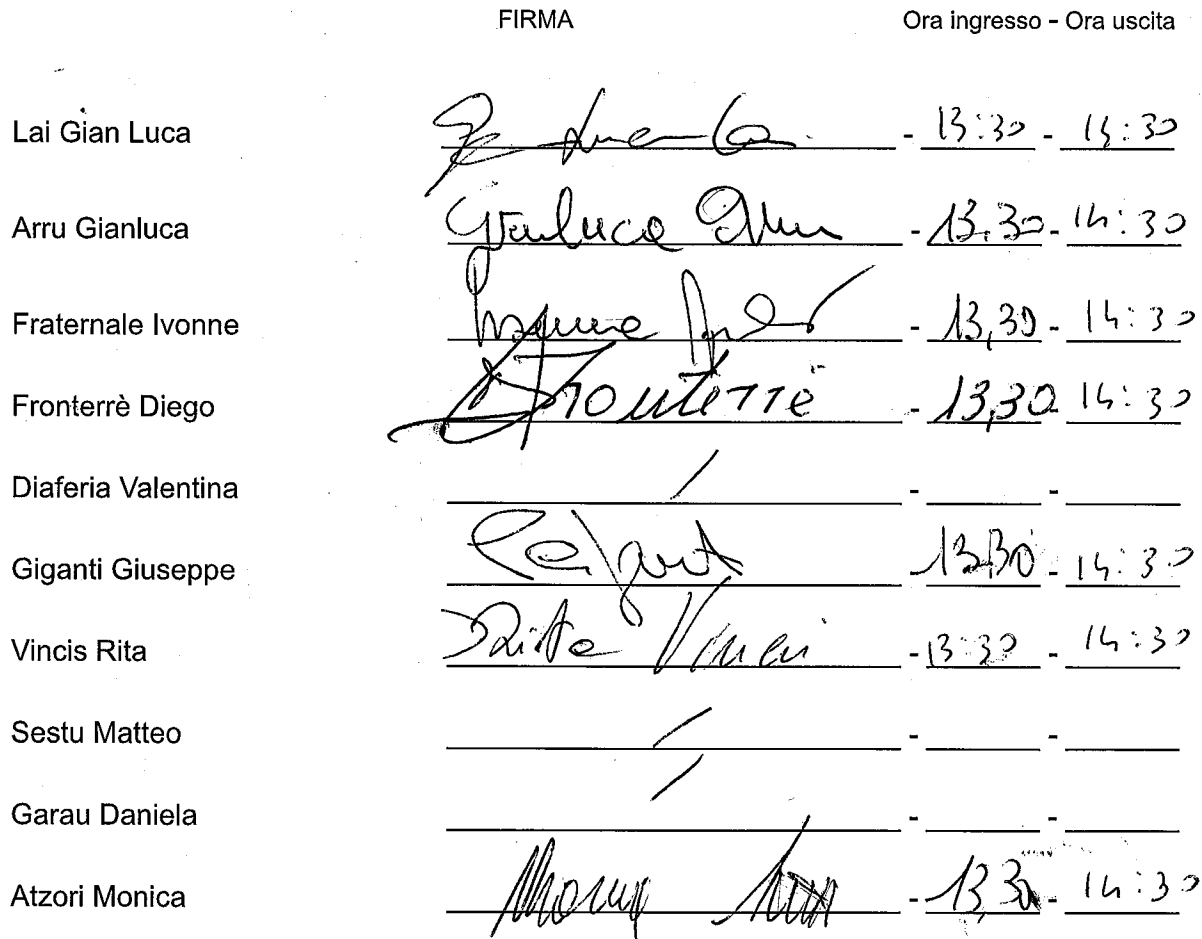 FIRMA Ora ingresso - Ora uscita
Lai Gian Luca - 13:30 - 14:30
Arru Gianluca Gianluca Arru - 13,30 - 14:30
Fraternale Ivonne - 13,30 - 14:30
Fronterrè Diego Fronterrè - 13,30 - 14:30
Diaferia Valentina / - -
Giganti Giuseppe - 13,30 - 14:30
Vincis Rita Rita Vincis - 13:30 - 14:30
Sestu Matteo / - -
Garau Daniela / - -
Atzori Monica - 13,30 - 14:30